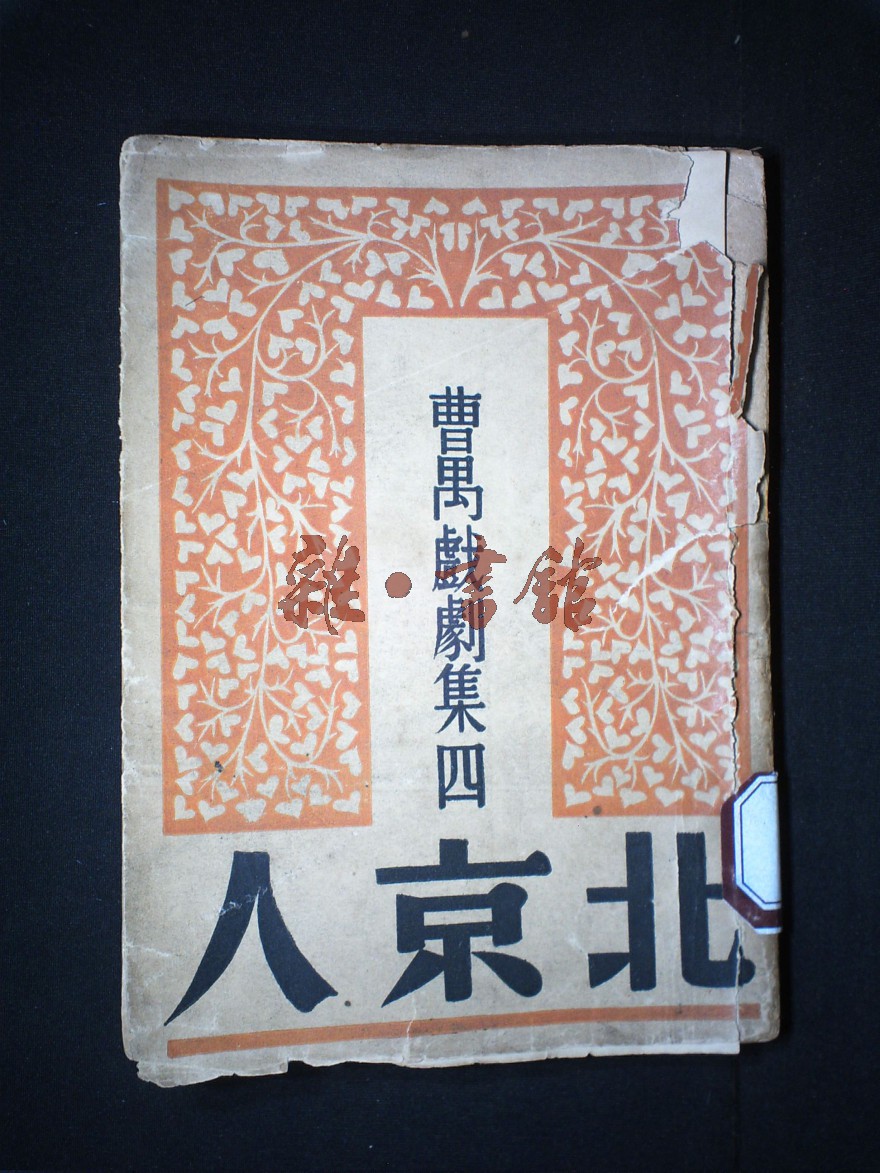 曹禺戲劇集四
北京人
雜·書館